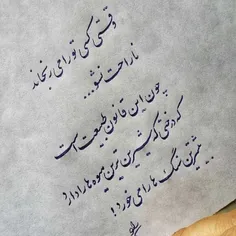 وقتی کسی تو را می رنجاند
ناراحت نشو...
چون این قانون طبیعت است
که درختی که شیرین ترین میوه ها را دارد
بیشترین سنگ ها را می خورد!